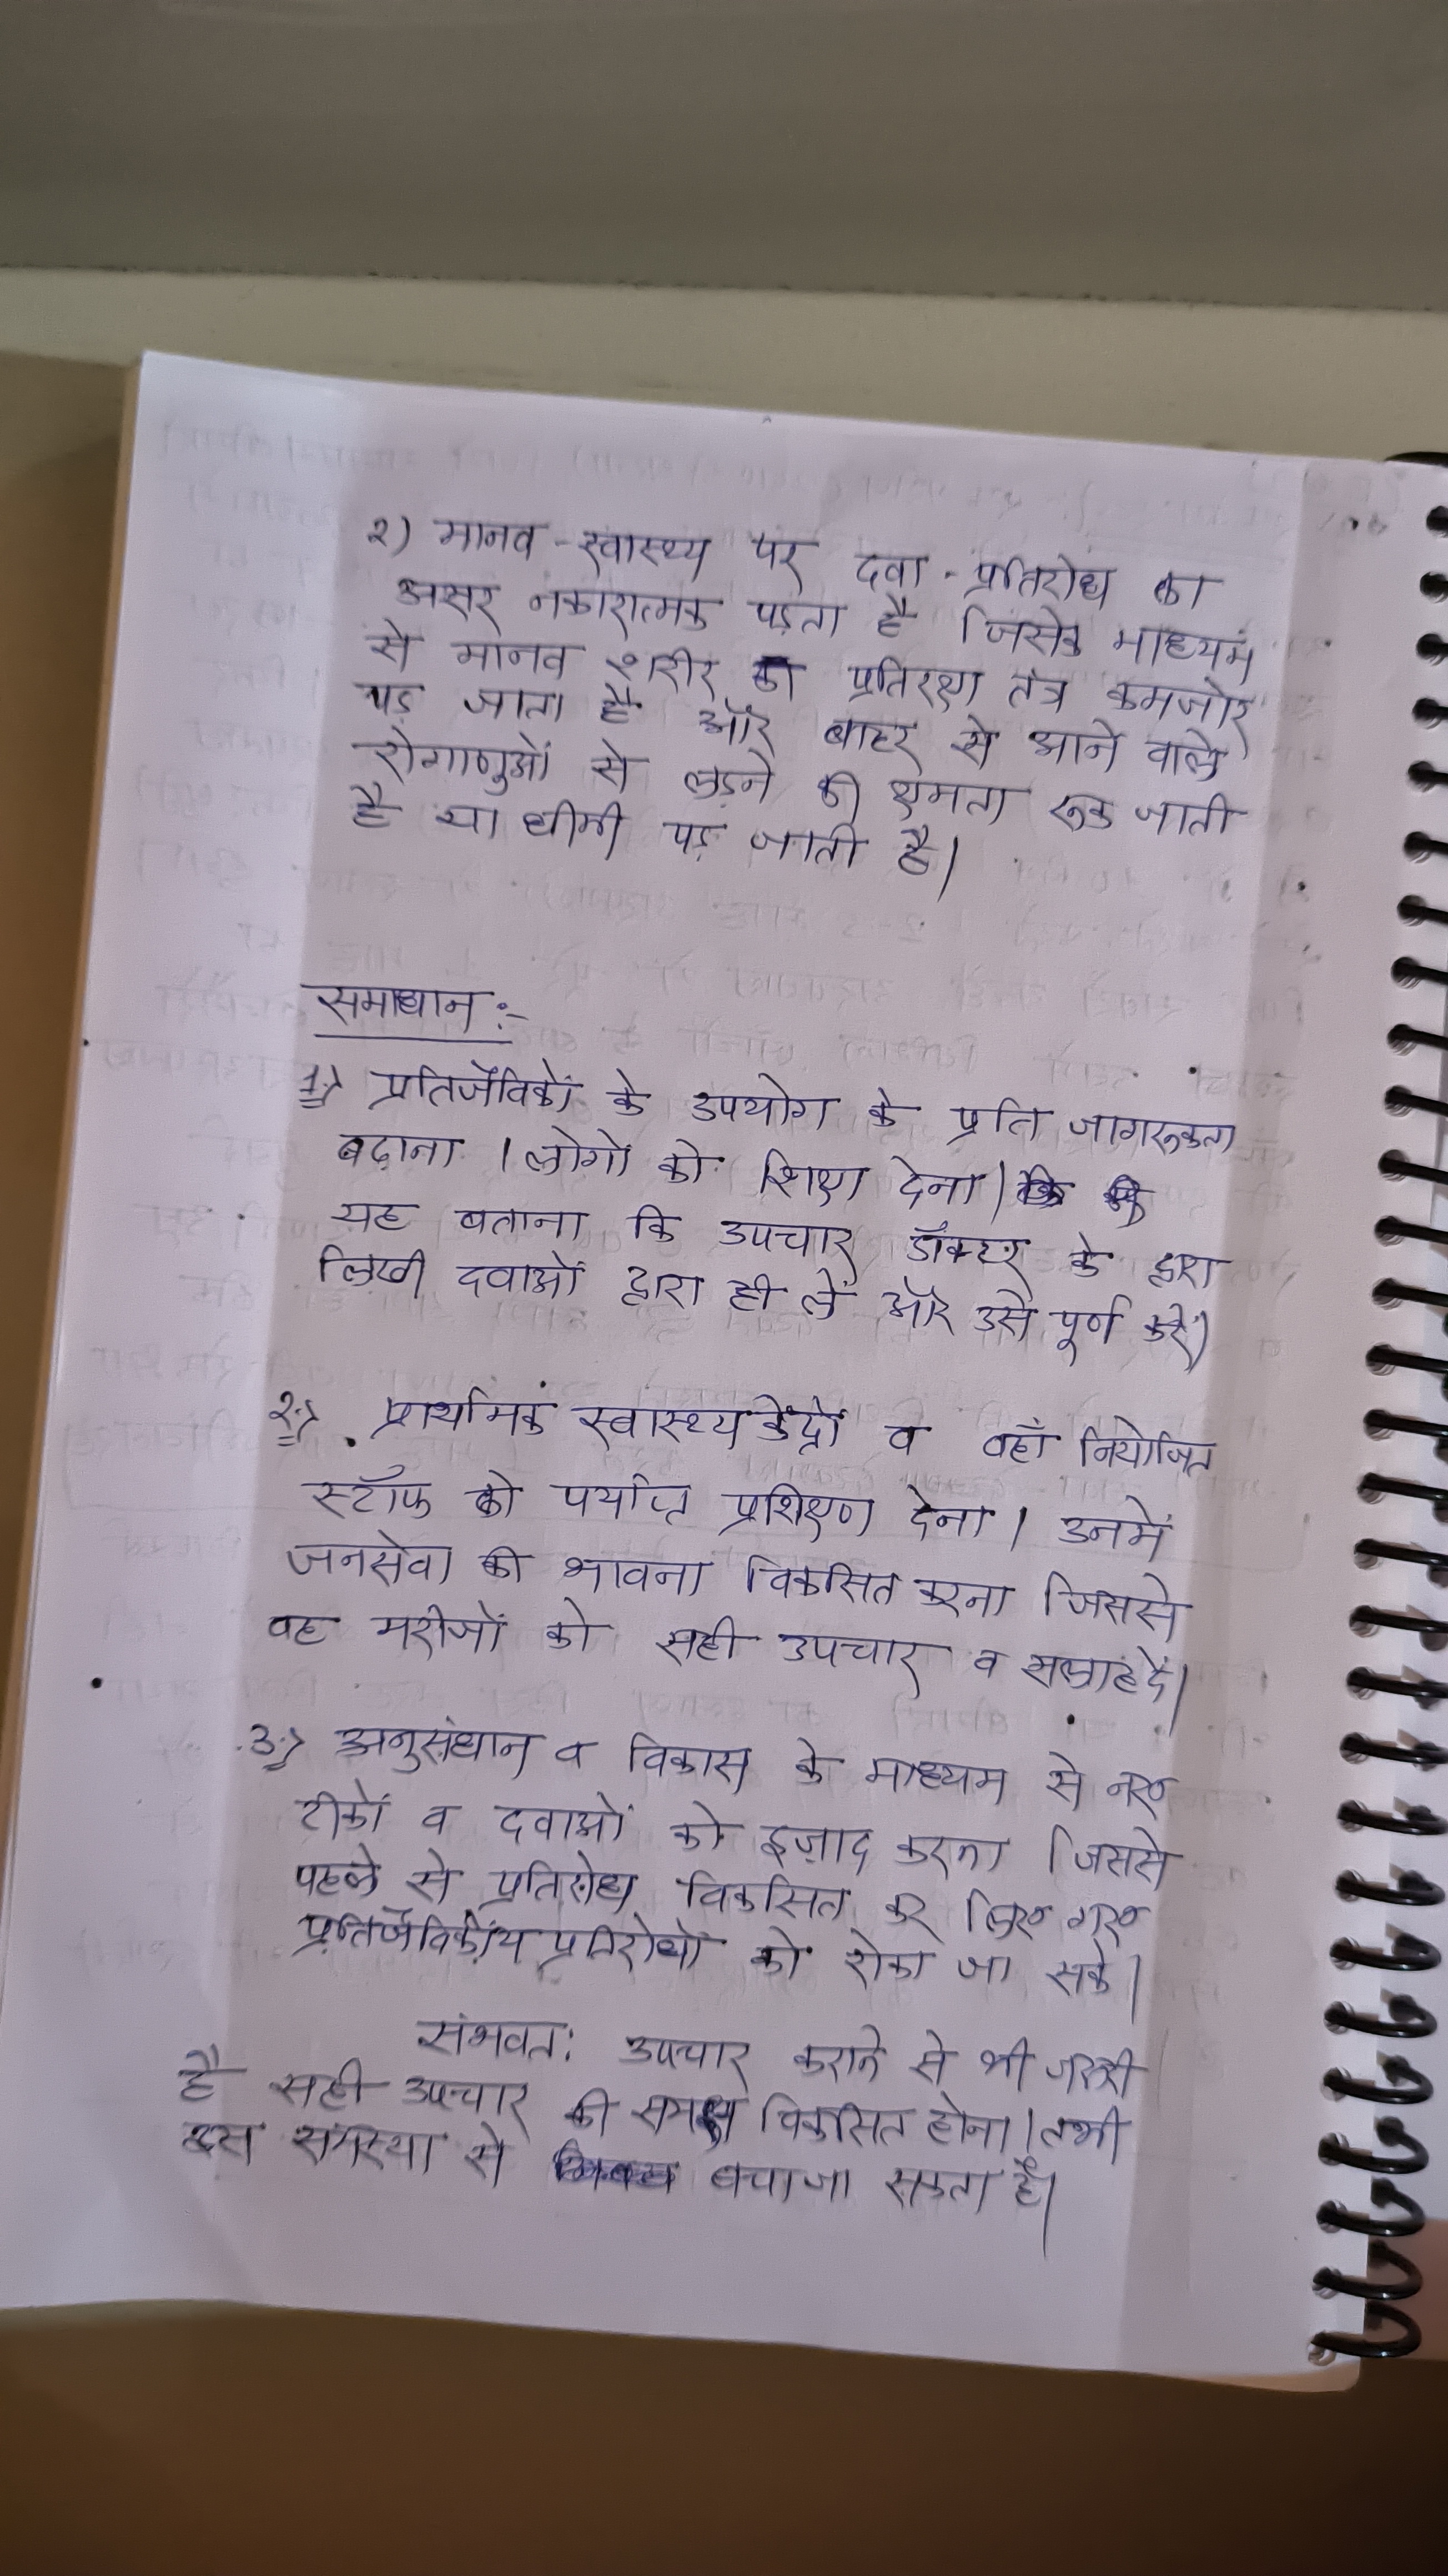 २) मानव-स्वास्थ्य पर दवा-प्रतिरोध का
असर नकारात्मक पड़ता है जिसके माध्यम
से मानव शरीर का प्रतिरक्षा तंत्र कमजोर
पड़ जाता है और बाहर से आने वाले
रोगाणुओं से लड़ने की क्षमता रूक जाती
है या धीमी पड़ जाती है।
समाधान:-
1) प्रतिजैविकों के उपयोग के प्रति जागरूकता
बढ़ाना । लोगों को शिक्षा देना।
यह बताना कि उपचार डॉक्टर के द्वारा
लिखी दवाओं द्वारा ही लें और उसे पूर्ण करें।
२) प्राथमिक स्वास्थ्य केंद्रों व वहाँ नियोजित
स्टॉफ को पर्याप्त प्रशिक्षण देना। उनमें
जनसेवा की भावना विकसित करना जिससे
वह मरीजों को सही उपचार व सलाह दें।
3) अनुसंधान व विकास के माध्यम से नए
टीकों व दवाओं को इज़ाद करना जिससे
पहले से प्रतिरोध विकसित कर लिए गए
प्रतिजैविकीय प्रतिरोधों को रोका जा सके।
संभवत: उपचार कराने से भी जरूरी
है सही उपचार की समझ विकसित होना। तभी
इस समस्या से बचा जा सकता है।